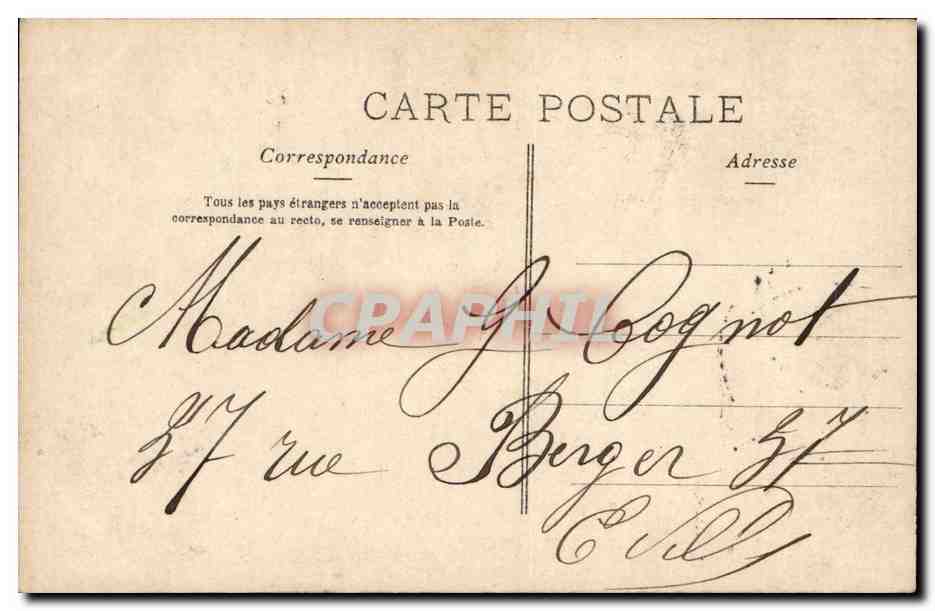 CARTE POSTALE
Correspondance
Adresse
Tous les pays étrangers n'acceptent pas la
correspondance au recto, se renseigner à la Poste.
CPAPHIL
Madame G Cognot
37 rue Berger 37
E Ville